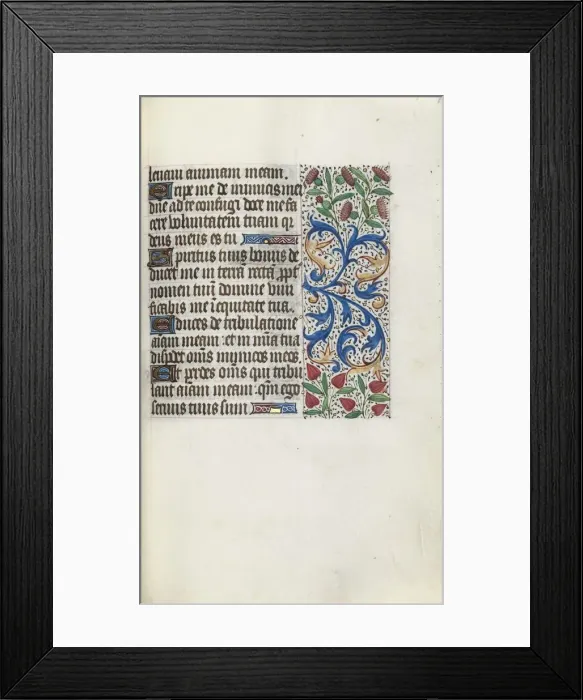 leuam animam meam.
Eripe me de inimicis mei
dne ad te confugi doce me fa
cere voluntatem tuam qr
deus meus es tu
Spiritus tuus bonus de
ducet me in terra recta, ppt
nomen tuum domine viui
ficabis me i equitate tua.
Educes de tribulatione
aiam meam: et in mia tua
disperdet oms inimicos meos.
Et perdes oms qui tribu
lant aiam meam: qm ego
seruus tuus sum